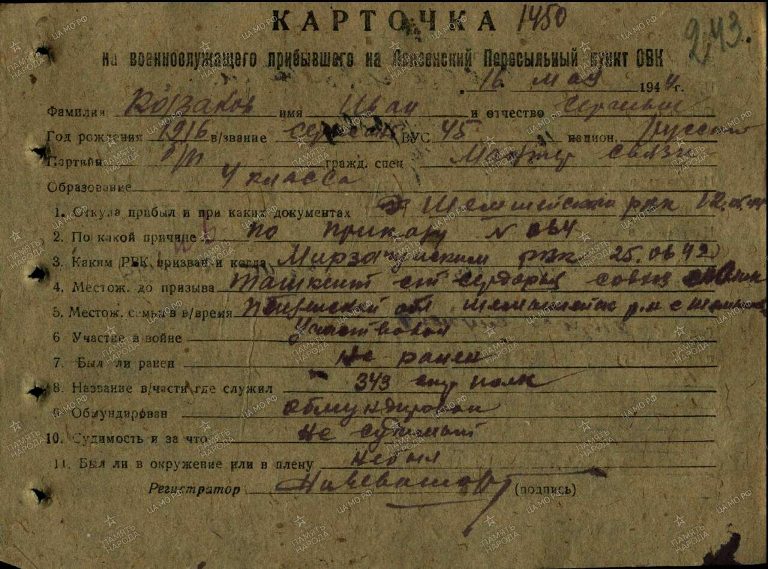 КАРТОЧКА 1450
2,43.
на военнослужащего прибывшего на Пензенский Пересыльный пункт ОВК
16 мая 1944 г.
Фамилия Козаков имя Иван и отчество Сергеевич
Год рождения 1916 в/звание сержант ВУС 45 национ. русский
Партийн. б/п гражд. спец Монтер связи
Образование 4 класса
1. Откуда прибыл и при каких документах Шемышейский рвк 12.05.44
2. По какой причине по приказу N 064
3. Каким РВК призван и когда Мирзачульским рвк 25.06 42
4. Местож. до призыва Ташкент ст Сердарья совхоз
5. Местож. семьи в в/время Пензенской обл Шемышейский р.н с
6 Участие в войне Участвовал
7. Был ли ранен Не ранен
8. Название в/части где служил 343 стр полк
9. Обмундирован обмундирован
10. Судимость и за что не судимый
11. Был ли в окружение или в плену не был
Регистратор (подпись)
ПАМЯТЬ НАРОДА
ЦАМО.РФ